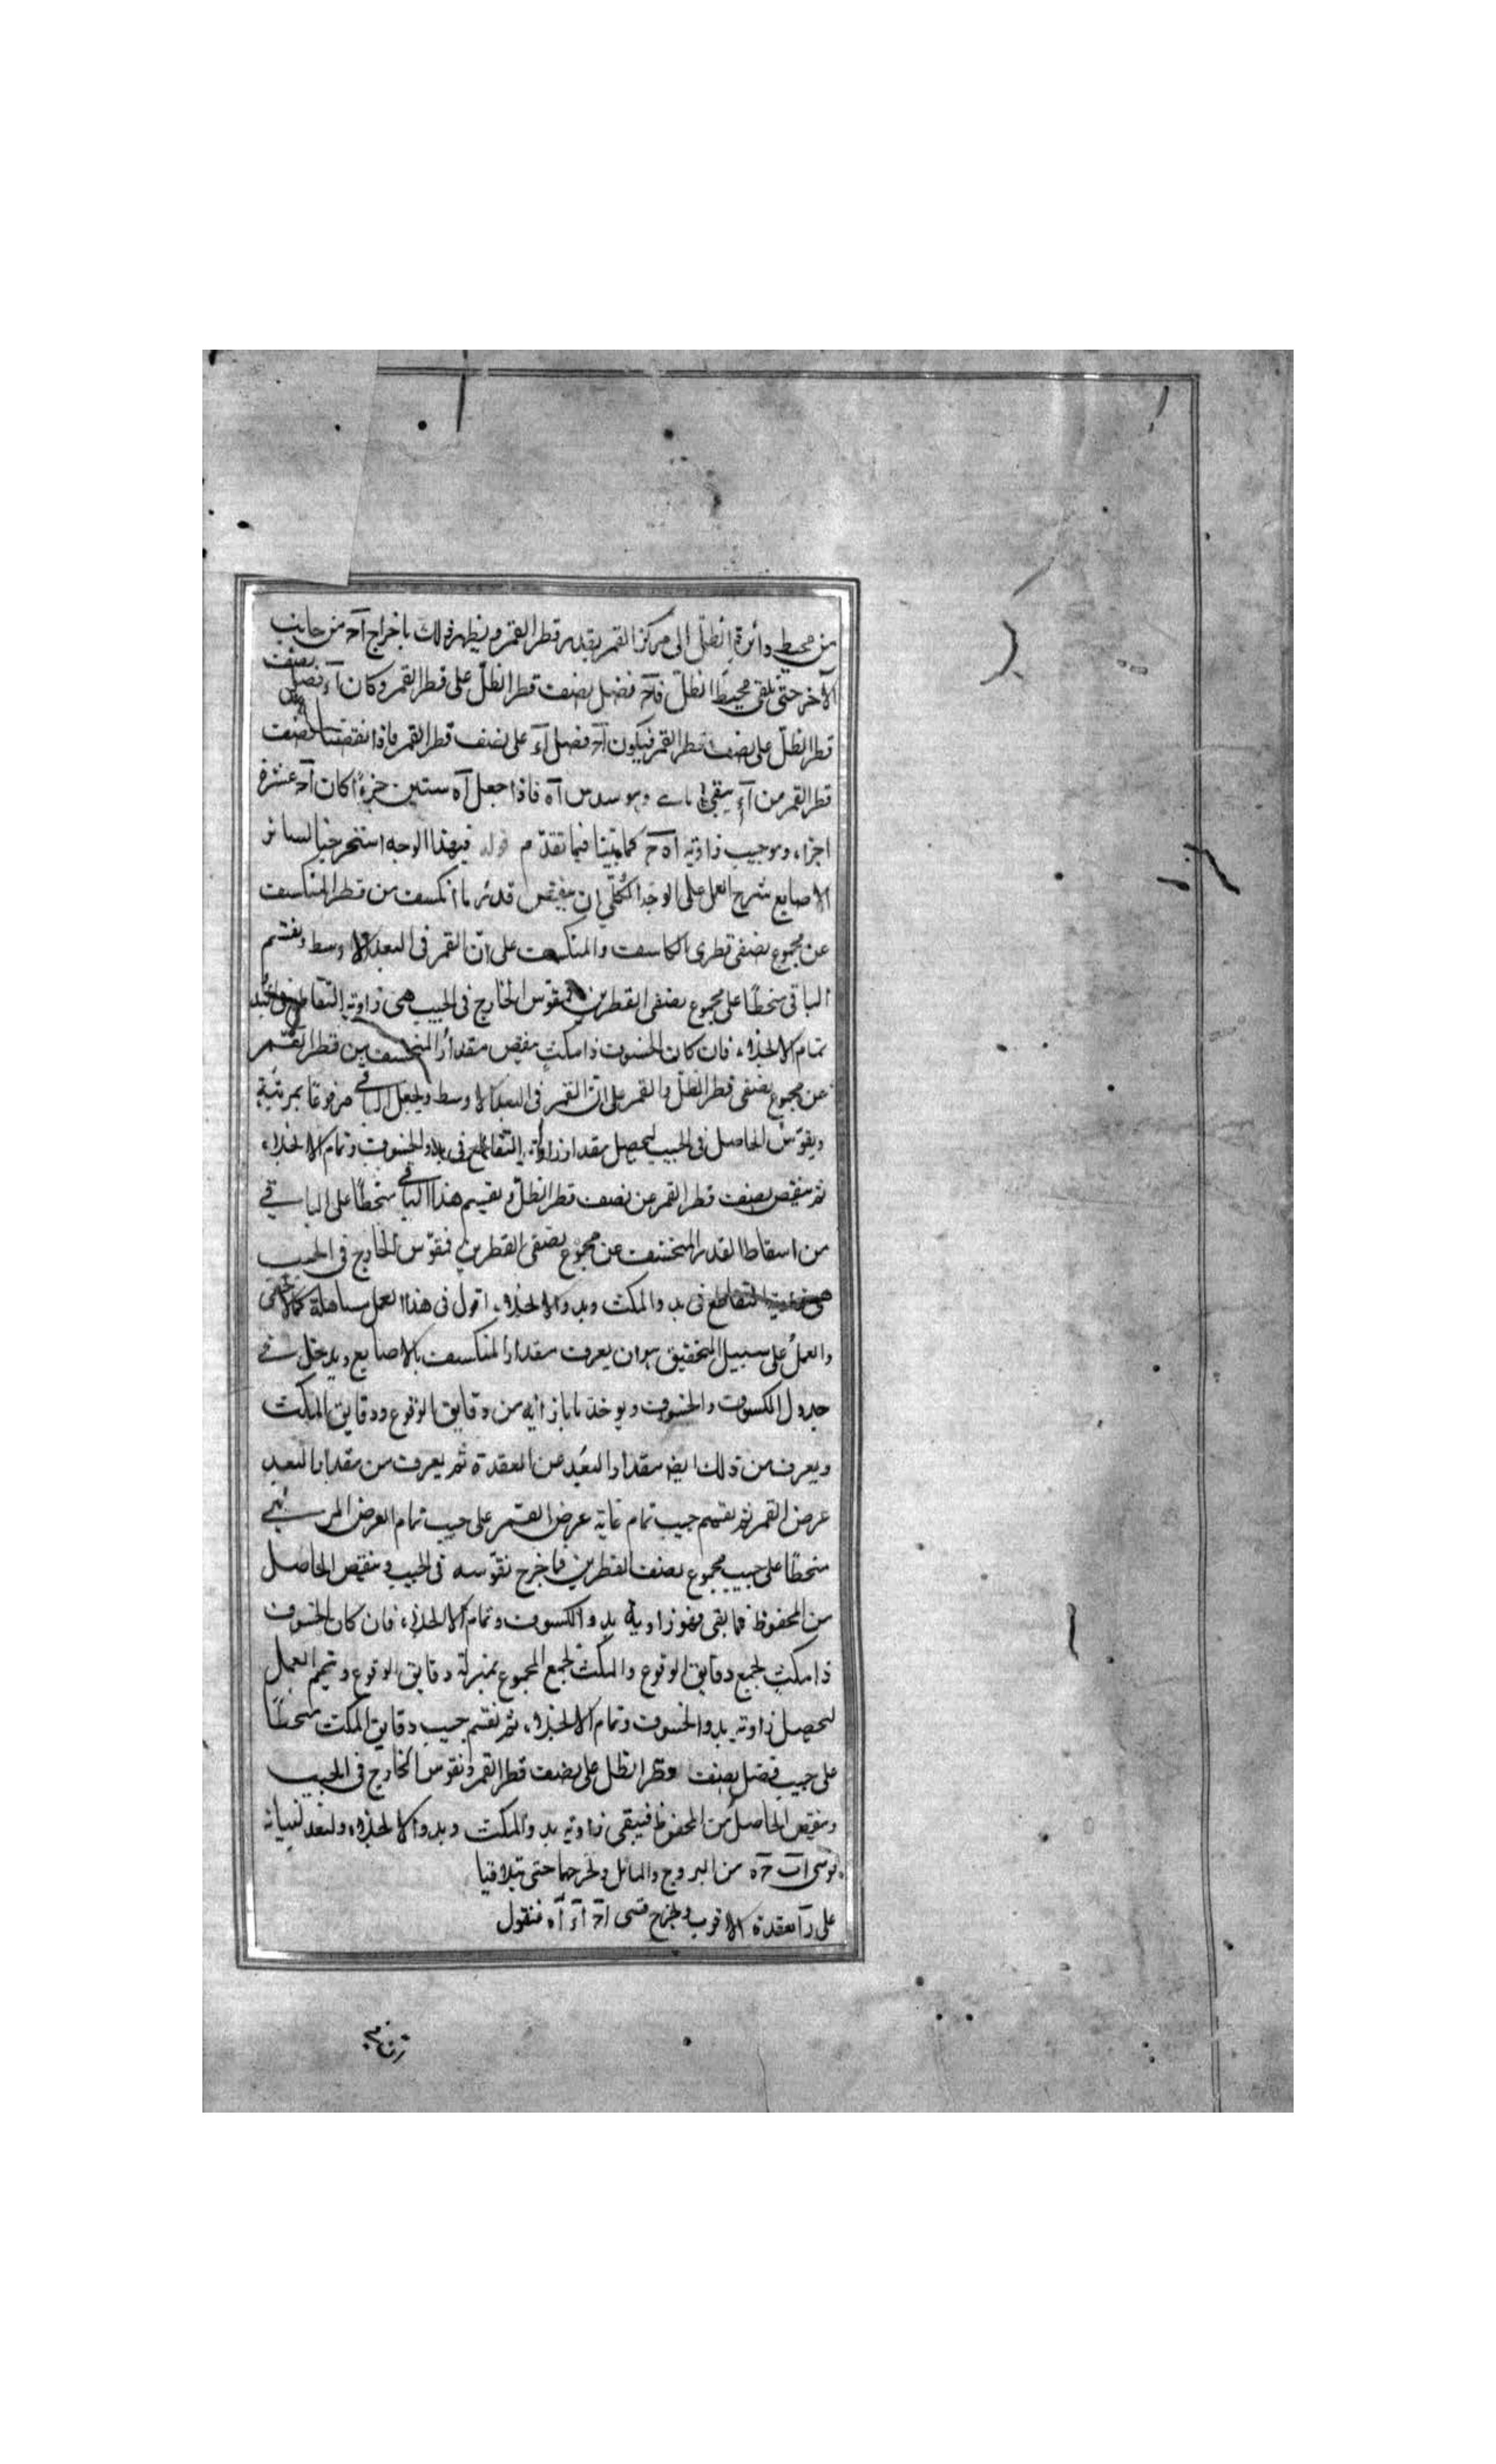 من محيط دائرة الظل الى مركز القمر بقدر قطر القمر ويظهر ذلك باخراج اَحَ من جانب
الآخر حتى يلقى محيط الظل فاَحَ فضل نصف قطر الظل على قطر القمر وكان اَءَ فضل نصف
قطر الظل على نصف قطر القمر فيكون اَحَ فضل اَءَ على نصف قطر القمر فاذا نقصنا نصف
قطر القمر من اَءَ يبقى وهو سدس اَه فاذا جعل اَه ستين جزءًا كان اَحَ عشرة
اجزاء وهو جيب زاوية اه حَ كما بيّنا فيما تقدّم قوله فبهذا الوجه استخرجنا لسائر
الاصابع شرح العمل على الوجه الكلّي ان ينقص قدر ما انكسف من قطر المنكسف
عن مجموع نصفى قطرى الكاسف والمنكسف على انّ القمر فى البعد الاوسط ونقسم
الباقى منحطًا على مجموع نصفى القطرين فقوس الخارج فى الجيب هى زاوية التقاطع
تمام الانجلاء فان كان الخسوف ذا مكث ينقص مقدار المنخسف من قطر القمر
عن مجموع نصفى قطر الظل والقمر على انّ القمر فى البعد الاوسط ويجعل الباقى مرفوعًا بمرتبة
ويقوّس الحاصل فى الجيب ليحصل مقدار زاوية التقاطع فى بدو الخسوف وتمام الانجلاء
ثم ينقص نصف قطر القمر عن نصف قطر الظل ويقسم هذا الباقى منحطًا على الباقى
من اسقاط القدر المنخسف عن مجموع نصفى القطرين فقوّس الخارج فى الجيب
هى زاوية التقاطع فى بدو المكث وبدو الانجلاء اقول فى هذا العمل مساهلة كما لا يخفى
والعمل على سبيل التحقيق هو ان يعرف مقدار المنكسف بالاصابع ويدخل فى
جدول الكسوف والخسوف ويوخذ ما بازائه من دقايق الوقوع ودقايق المكث
ويعرف من ذلك ايضا مقدار البعد عن العقدة ثم يعرف من مقدار البعد
عرض القمر ثم نقسم جيب تمام غاية عرض القمر على جيب تمام العرض المرئى
منحطًا على جيب مجموع نصف القطرين فما خرج نقوّسه فى الجيب وينقص الحاصل
من المحفوظ فما بقى فهو زاوية بدو الكسوف وتمام الانجلاء فان كان الخسوف
ذا مكث نجمع دقايق الوقوع والمكث نجمع المجموع بمنزلة دقايق الوقوع ويتم العمل
لتحصيل زاوية بدو الخسوف وتمام الانجلاء ثم نقسم جيب دقايق المكث منحطًا
على جيب فضل نصف قطر الظل على نصف قطر القمر ونقوس الخارج فى الجيب
وينقص الحاصل من المحفوظ فيبقى زاوية بدو المكث وبدو الانجلاء ولنعد لبيانه
قوسى اب حَ ه من البروج والمائل ونخرجهما حتى يتلاقيا
على رَ العقدة الاقرب ونخرج قسى اَحَ اَءَ اَه فنقول